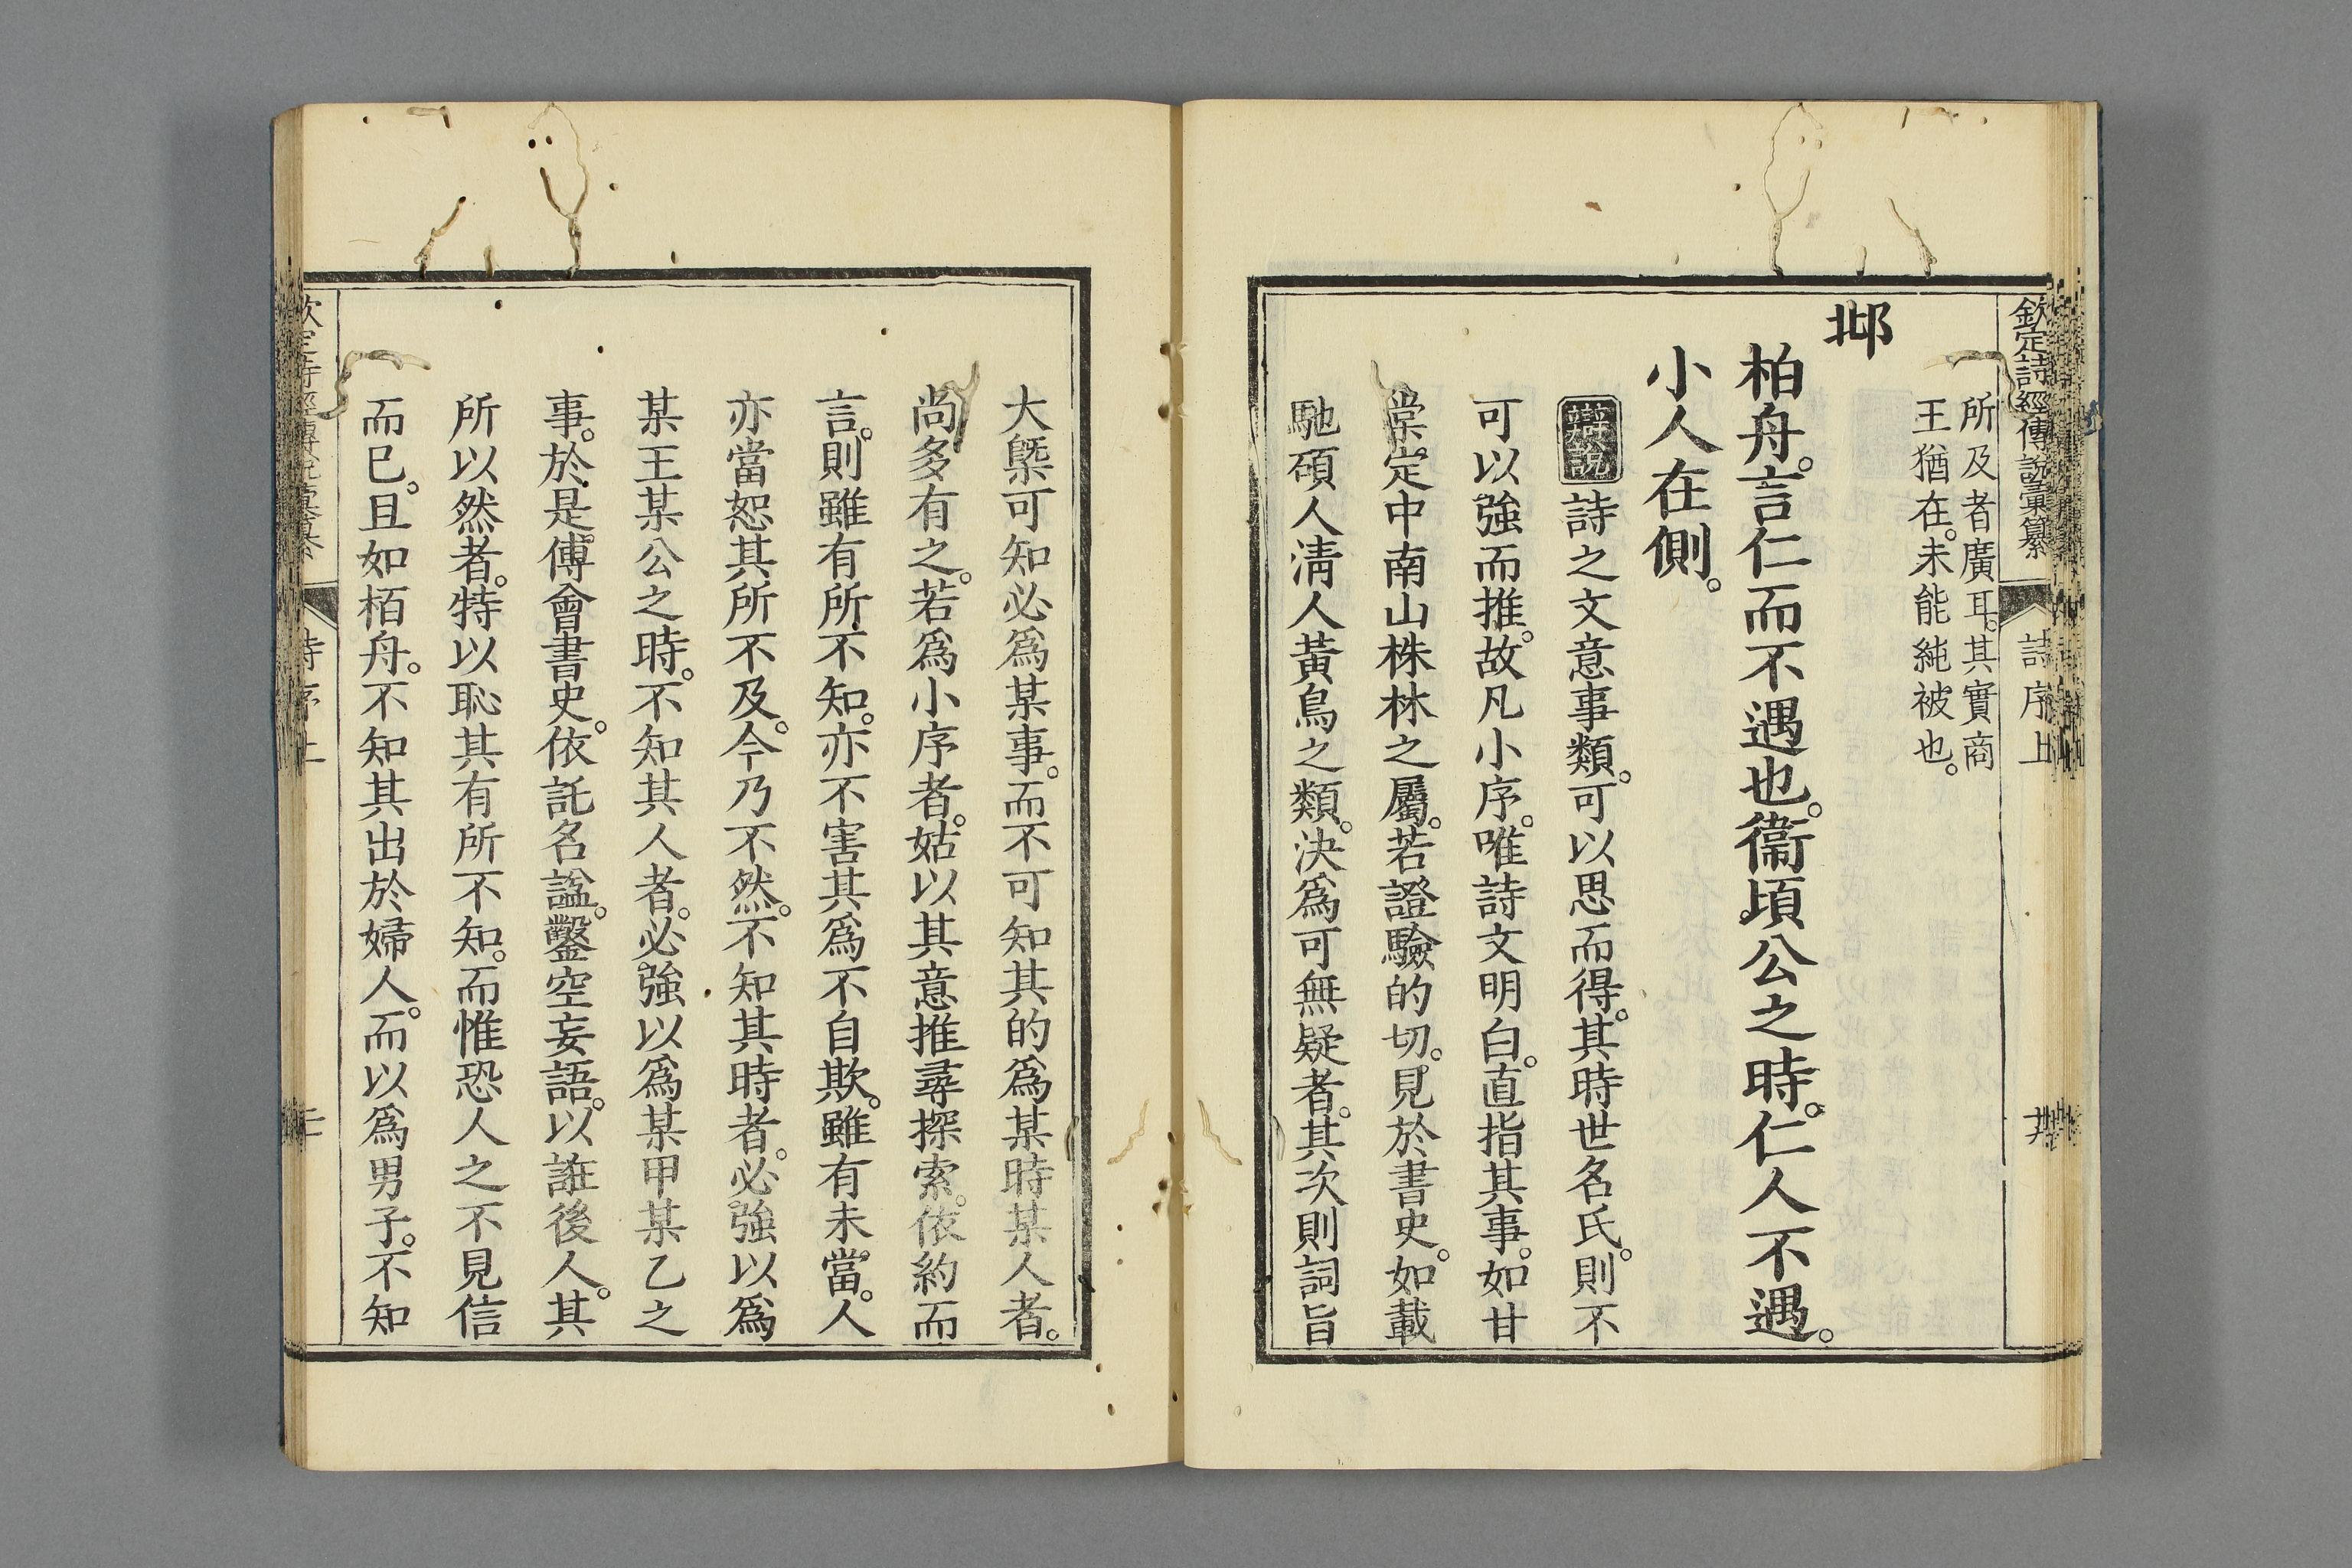 欽定詩經傳說彙纂 詩序上
所及者廣耳。其實商
王猶在。未能純被也。
邶
柏舟。言仁而不遇也。衞頃公之時。仁人不遇。
小人在側。
辯說 詩之文意事類。可以思而得。其時世名氏。則不
可以強而推。故凡小序。唯詩文明白。直指其事。如甘
棠。定中南山株林之屬。若證驗的切。見於書史。如載
馳碩人淸人黃鳥之類。決爲可無疑者。其次則詞旨
大槩可知必爲某事。而不可知其的爲某時某人者。
尚多有之。若爲小序者。姑以其意推尋探索。依約而
言。則雖有所不知。亦不害其爲不自欺。雖有未當。人
亦當恕其所不及。今乃不然。不知其時者。必強以爲
某王某公之時。不知其人者。必強以爲某甲某乙之
事。於是傅會書史。依託名謚。鑿空妄語。以誑後人。其
所以然者。特以恥其有所不知。而惟恐人之不見信
而已。且如栢舟。不知其出於婦人。而以爲男子。不知